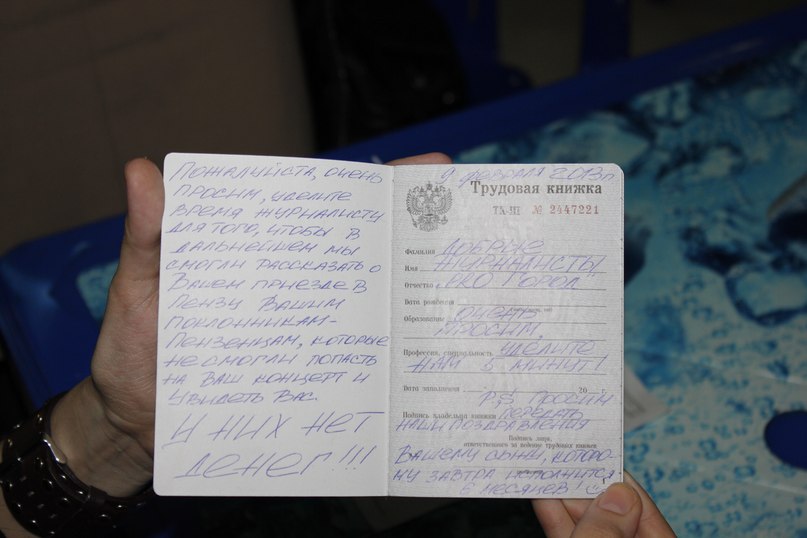 Пожалуйста, очень
просим, уделите
время журналисту
для того, чтобы в
дальнейшем мы
смогли рассказать о
Вашем приезде в
Пензу Вашим
поклонникам-
пензенцам, которые
не смогли попасть
на Ваш концерт и
увидеть Вас
У НИХ НЕТ
ДЕНЕГ!!!
9 февраля 2013г
Трудовая книжка
ТК-III № 2447221
Фамилия ДОБРЫЕ
Имя ЖУРНАЛИСТЫ
Отчество "ЭКО ГОРОД"
Дата рождения
Образование ОЧЕНЬ
ПРОСИМ,
Профессия, специальность УДЕЛИТЕ
НАМ 5 МИНУТ!
Дата заполнения 20 г.
P.S ПРОСИМ
Подпись владельца книжки ПЕРЕДАТЬ
НАШИ ПОЗДРАВЛЕНИЯ
Подпись лица,
ответственного за ведение трудовых книжек
ВАШЕМУ СЫНУ, КОТОРО-
МУ ЗАВТРА ИСПОЛНИТСЯ
6 МЕСЯЦЕВ!